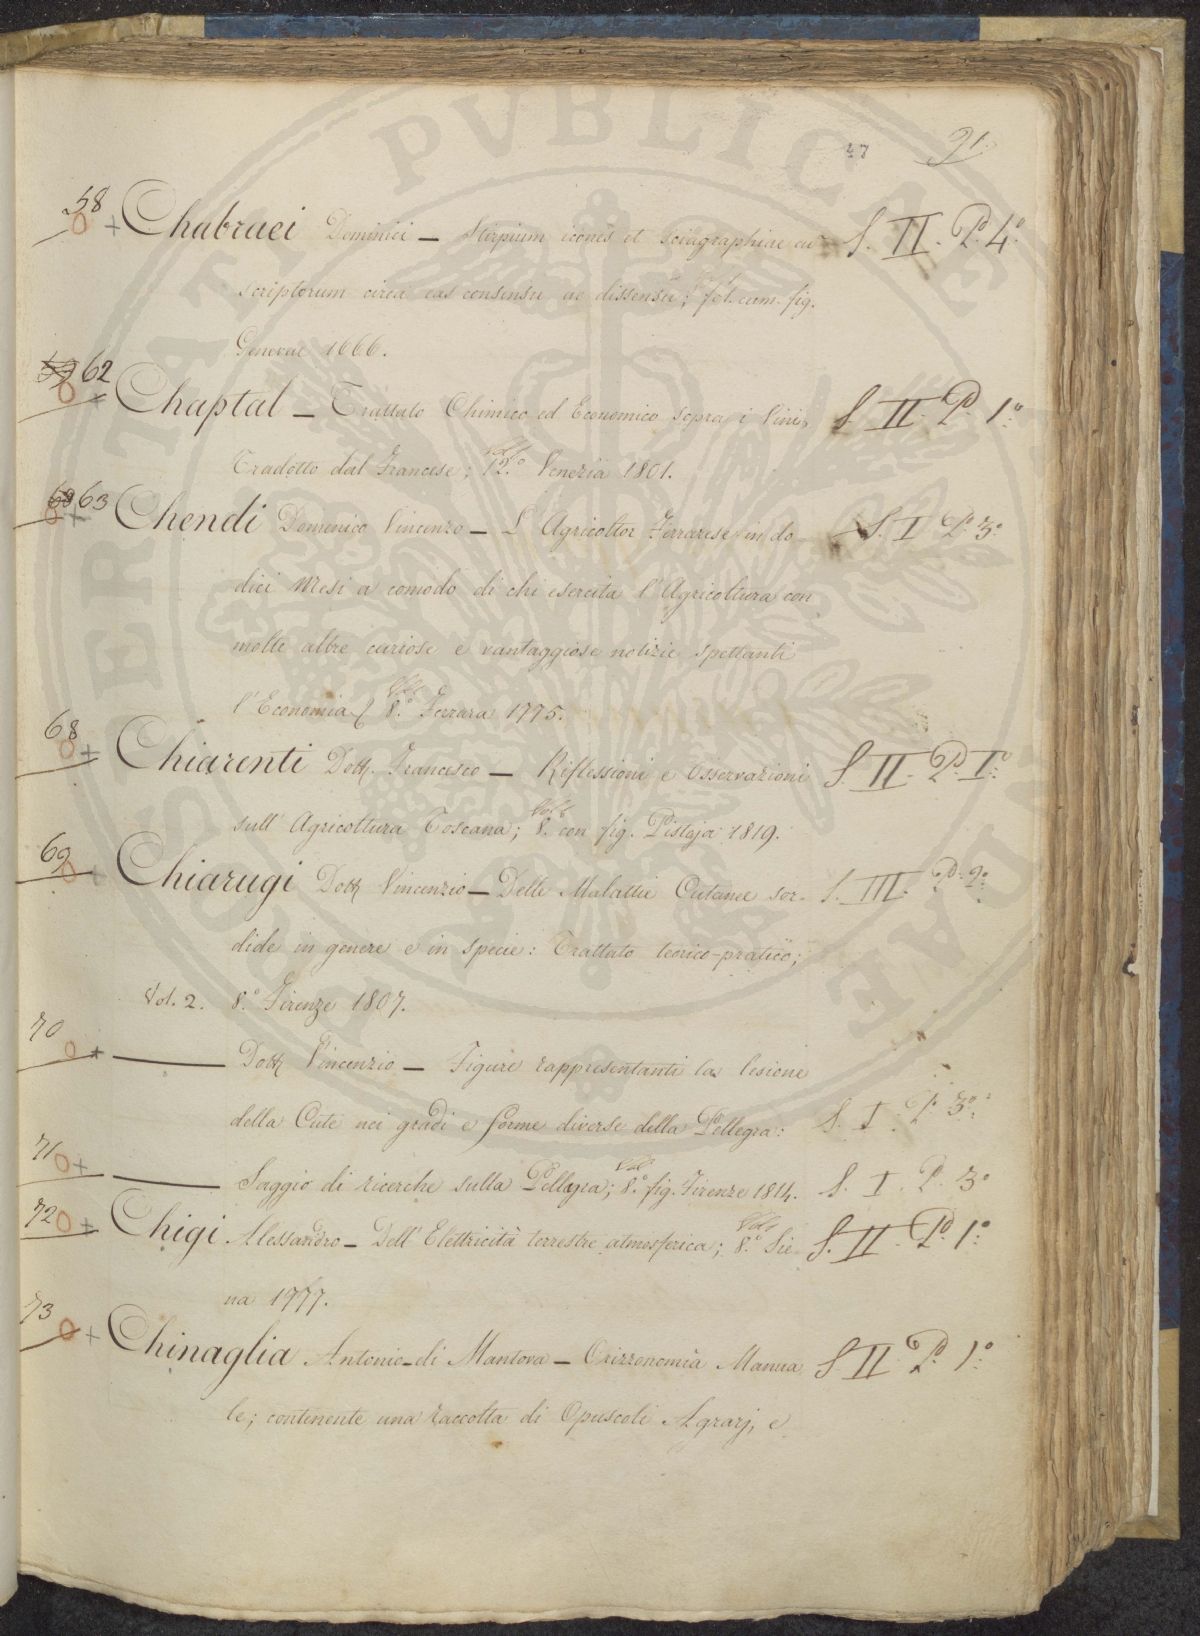 47 91.
58 + Chabraei Dominici — Stirpium icones et sciagraphiae cū S. II. P.º 4.º
scriptorum circa eas consensu ac dissensu; fol. cum. fig.
Genevae 1666.
59 62 + Chaptal — Trattato Chimico ed Economico sopra i Vini, S. II. P.º 1.º
Tradotto dal Francese; 12.º Venezia 1801.
60 63 + Chendi Domenico Vincenzo — L'Agricoltor Ferrarese in do- S. I P.º 3.º
dici Mesi a comodo di chi esercita l'Agricoltura con
molte altre curiose e vantaggiose notizie spettanti
l'Economia; 8.º Ferrara 1775.
68 + Chiarenti Dott. Francesco — Riflessioni e Osservazioni S. II. P.º I.º
sull'Agricoltura Toscana; 8. con fig. Pistoja 1819.
69 + Chiarugi Dott. Vincenzio — Delle Malattie Cutanee sor- S. III. P.º 2.º
dide in genere e in specie: Trattato teorico-pratico;
Vol. 2. 8.º Firenze 1807.
70 + — Dott. Vincenzio — Figure rappresentanti la lesione
della Cute nei gradi e forme diverse della Pellegra: S. I. P.º 3.º
71 + — Saggio di ricerche sulla Pellagra; 8.º fig. Firenze 1814. S. I. P. 3.º
72 + Chigi Alessandro — Dell'Elettricità terrestre atmosferica; 8.º Sie- S. II P.º 1.º
na 1777.
73 + Chinaglia Antonio di Mantova — Orizzonomia Manua S. II P.º 1.º
le; contenente una raccolta di Opuscoli Agrarj, e
PVBLICAE